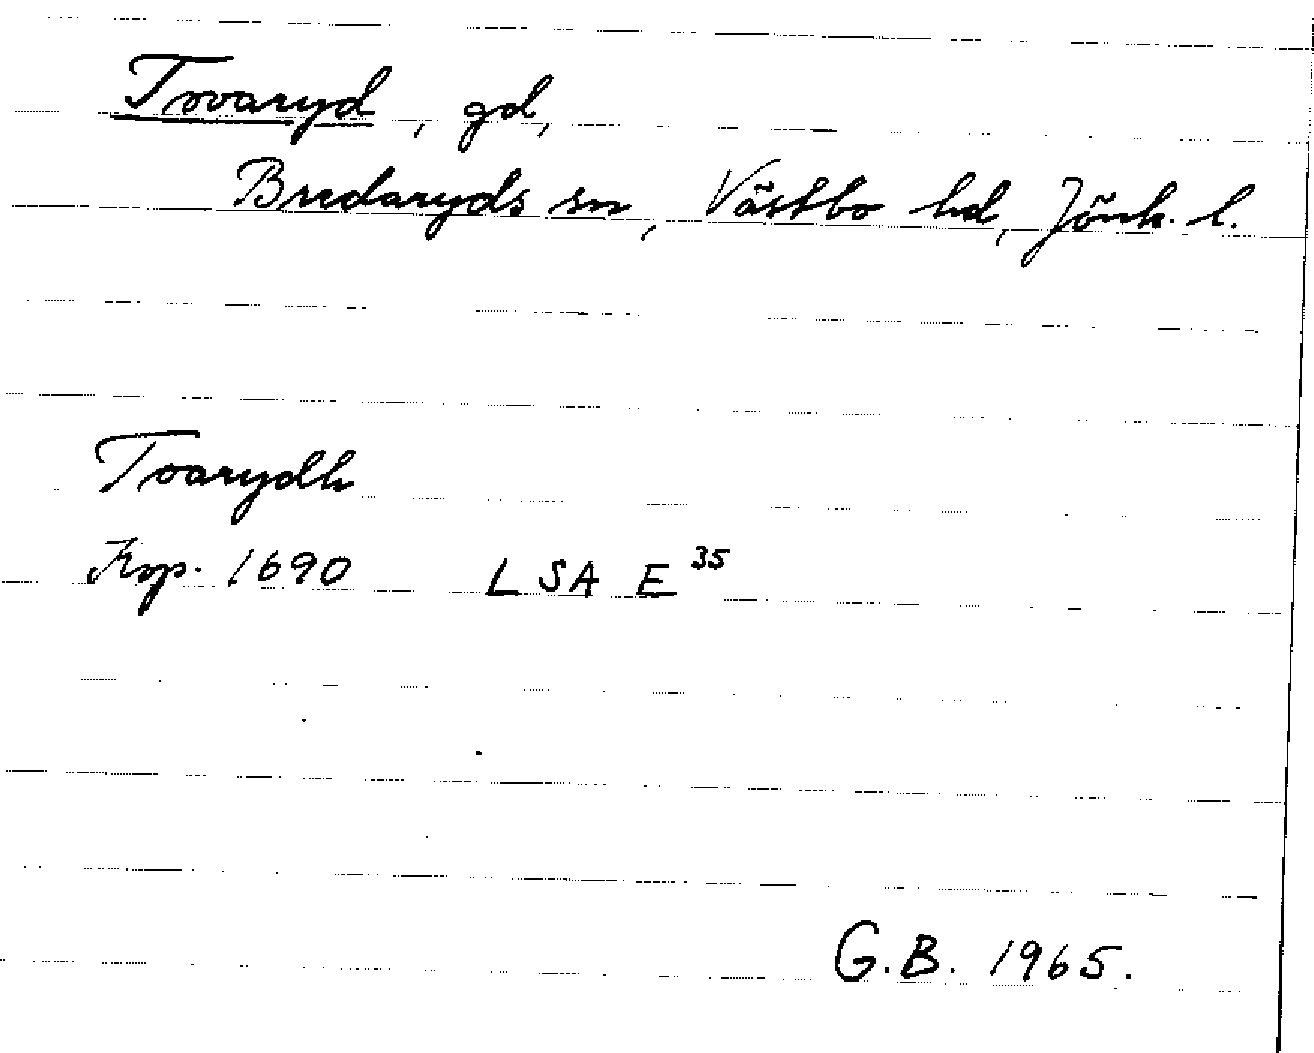 Tovaryd, gd,
Bredaryds sn, Västbo hd, Jönk. l.
Toarydh
Krp. 1690 LSA E 35
G.B. 1965.